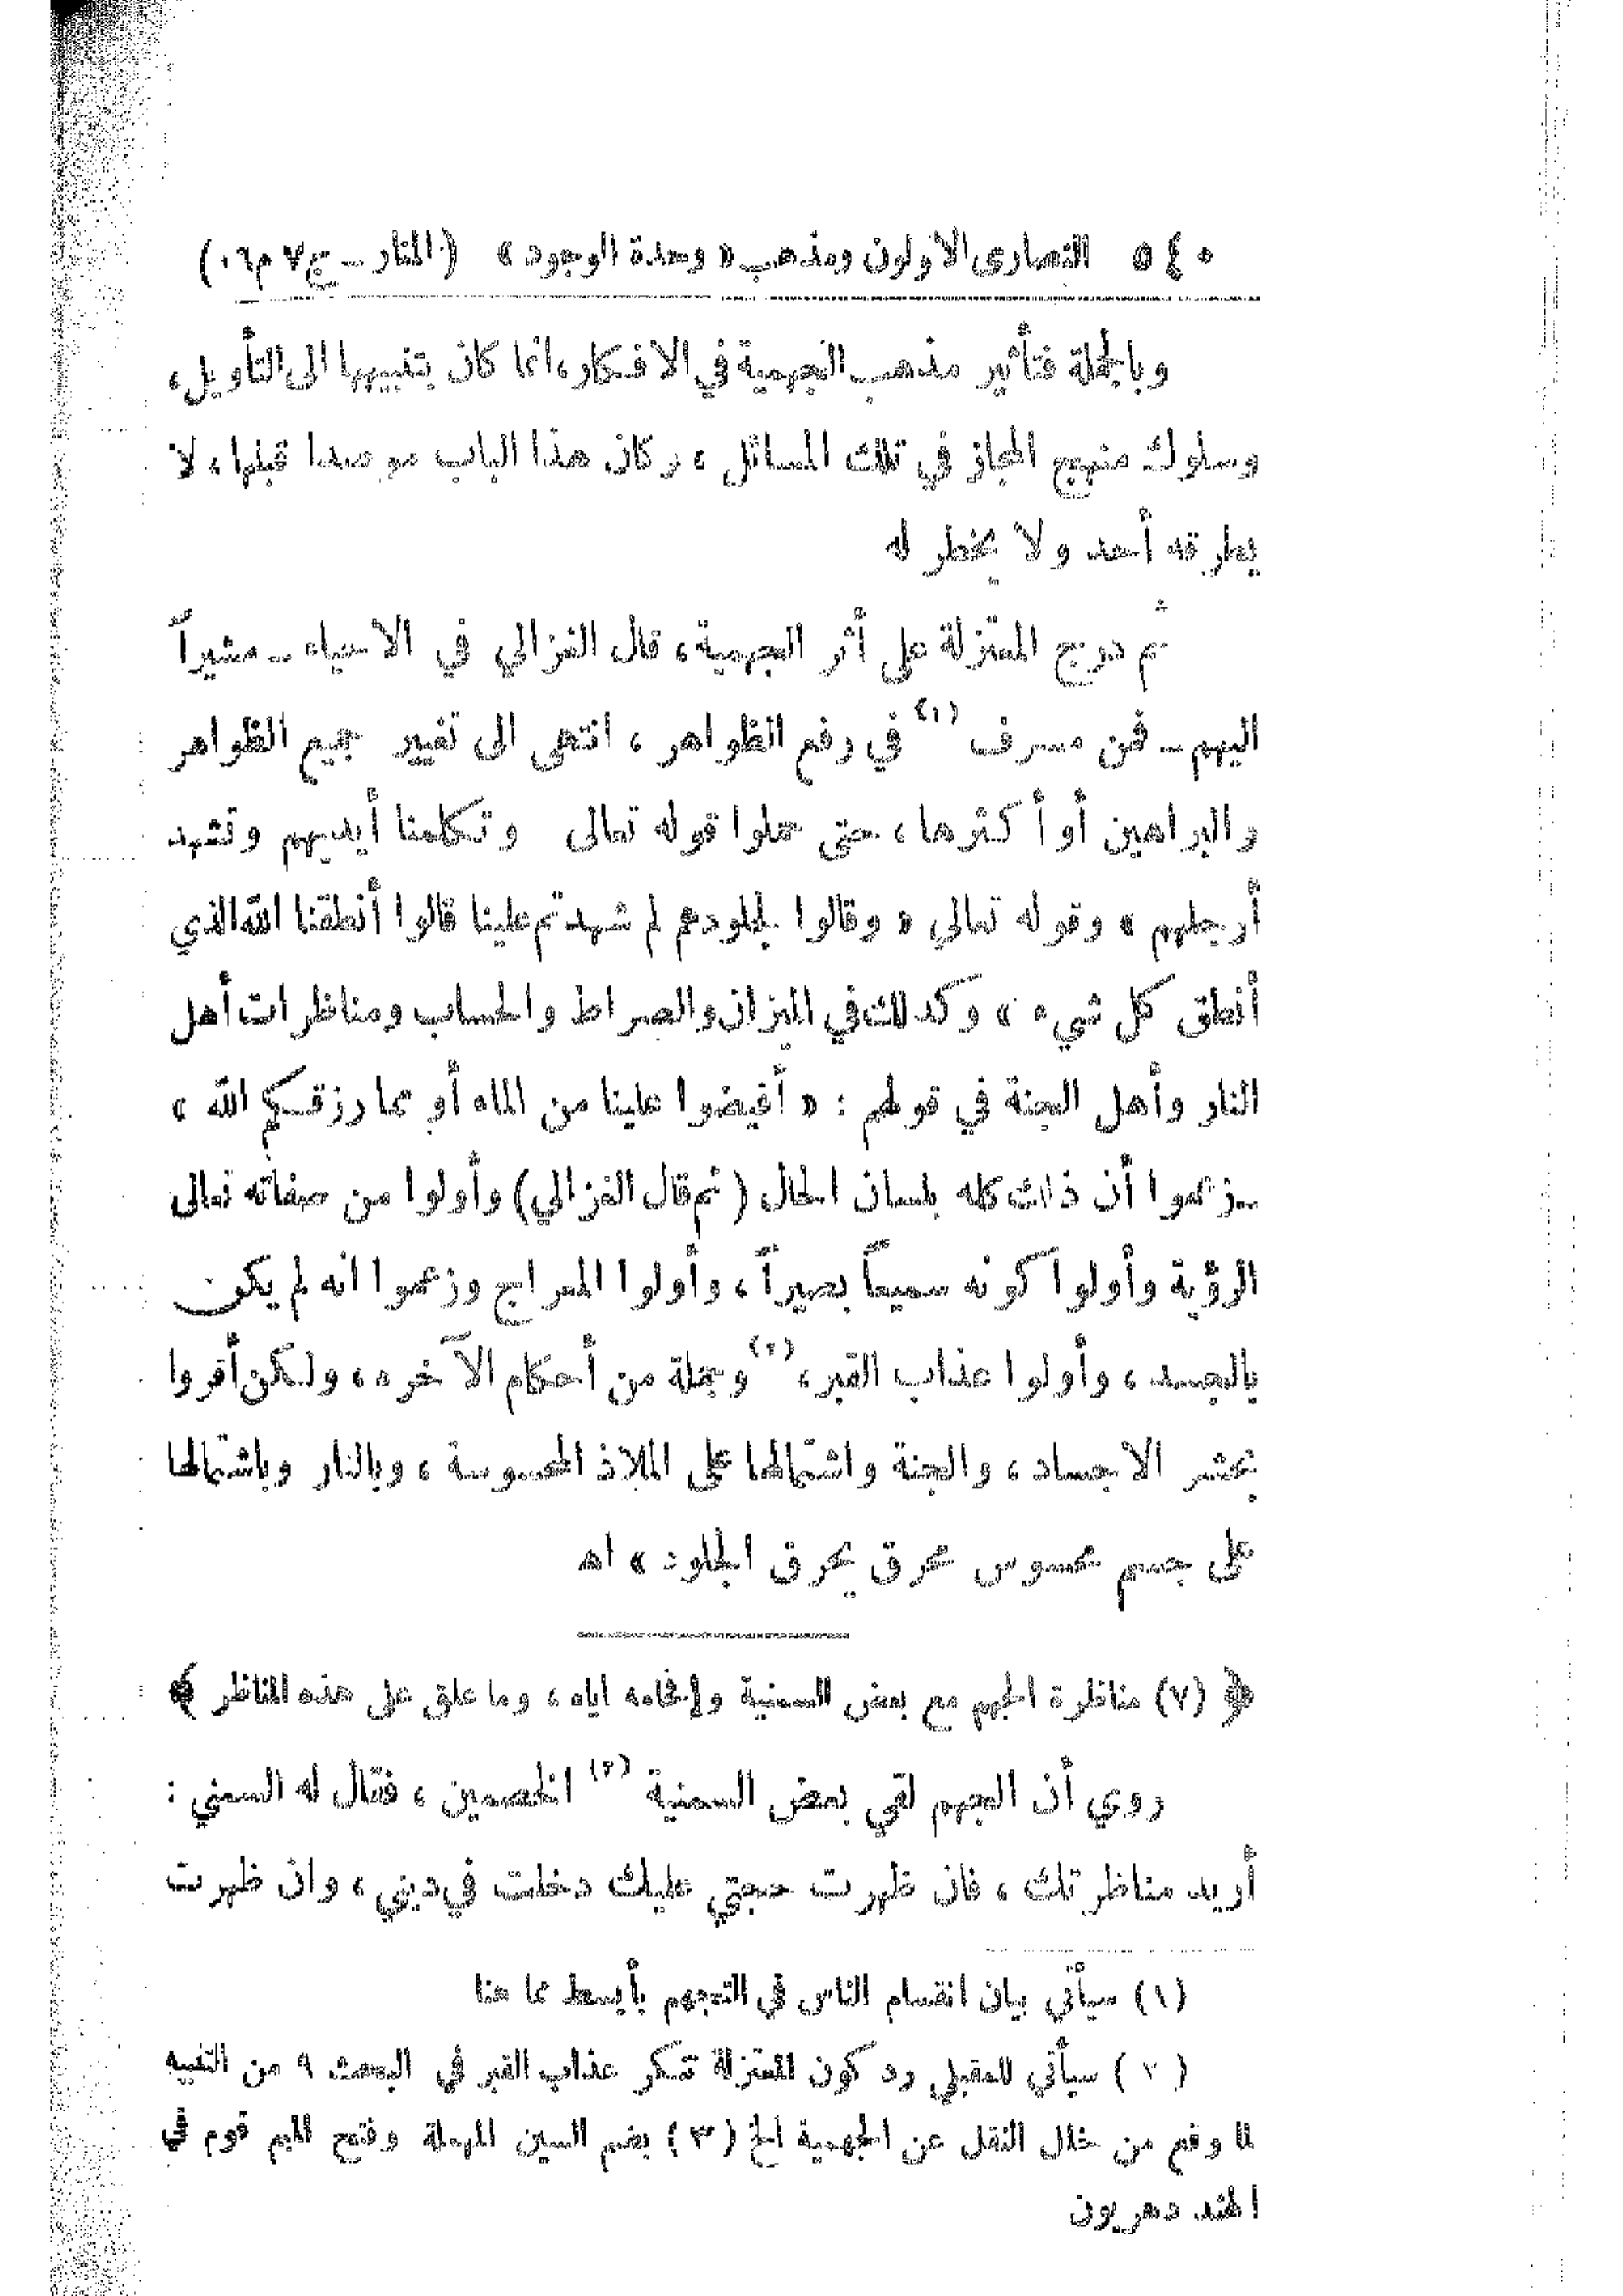 ٥٤٠ النصارى الاولون ومذهب « وحدة الوجود » (المنار – ج ٧ م ١٦)
وبالجملة فتأثير مذهب الجهمية في الافكار، انما كان بتنبيهها الى التأويل،
وسلوك منهج المجاز في تلك المسائل، وكان هذا الباب موصدا قبلها، لا
يطرقه أحد ولا يخطر له
ثم درج المعتزلة على أثر الجهمية، قال الغزالي في الاحياء – مشيراً
اليهم – فمن مسرف (١) في رفع الظواهر، انتهى الى تغيير جميع الظواهر
والبراهين أو أكثرها، حتى حملوا قوله تعالى وتكلمنا أيديهم وتشهد
أرجلهم » وقوله تعالى « وقالوا لجلودهم لم شهدتم علينا قالوا أنطقنا الله الذي
أنطق كل شيء » وكذلك في الميزان والصراط والحساب ومناظرات أهل
النار وأهل الجنة في قولهم : « أفيضوا علينا من الماء أو مما رزقكم الله »
– زعموا أن ذلك كله بلسان الحال (ثم قال الغزالي) وأولوا من صفاته تعالى
الرؤية وأولوا كونه سميعاً بصيراً، وأولوا المعراج وزعموا انه لم يكن
بالجسد، وأولوا عذاب القبر، (٢) وجملة من أحكام الآخره، ولكن أقروا
بحشر الاجساد، والجنة واشتمالها على الملاذ المحسوسة، وبالنار وباشتمالها
على جسم محسوس محرق يحرق الجلود » اه
﴿ (٧) مناظرة الجهم مع بعض السمنية وإفحامه اياه، وما علق على هذه المناظر ﴾
روي أن الجهم لقي بعض السمنية (٣) الخصمين، فقال له السمني :
أريد مناظرتك، فان ظهرت حجتي عليك دخلت في ديني، وان ظهرت
(١) سيأتي بيان انقسام الناس في التجهم بأبسط مما هنا
(٢) سيأتي للمقبلي رد كون المعتزلة تنكر عذاب القبر في البحث ٩ من التنبيه
لما وقع من خلال النقل عن الجهمية الخ (٣) بضم السين المهملة وفتح الميم قوم في
الهند دهريون